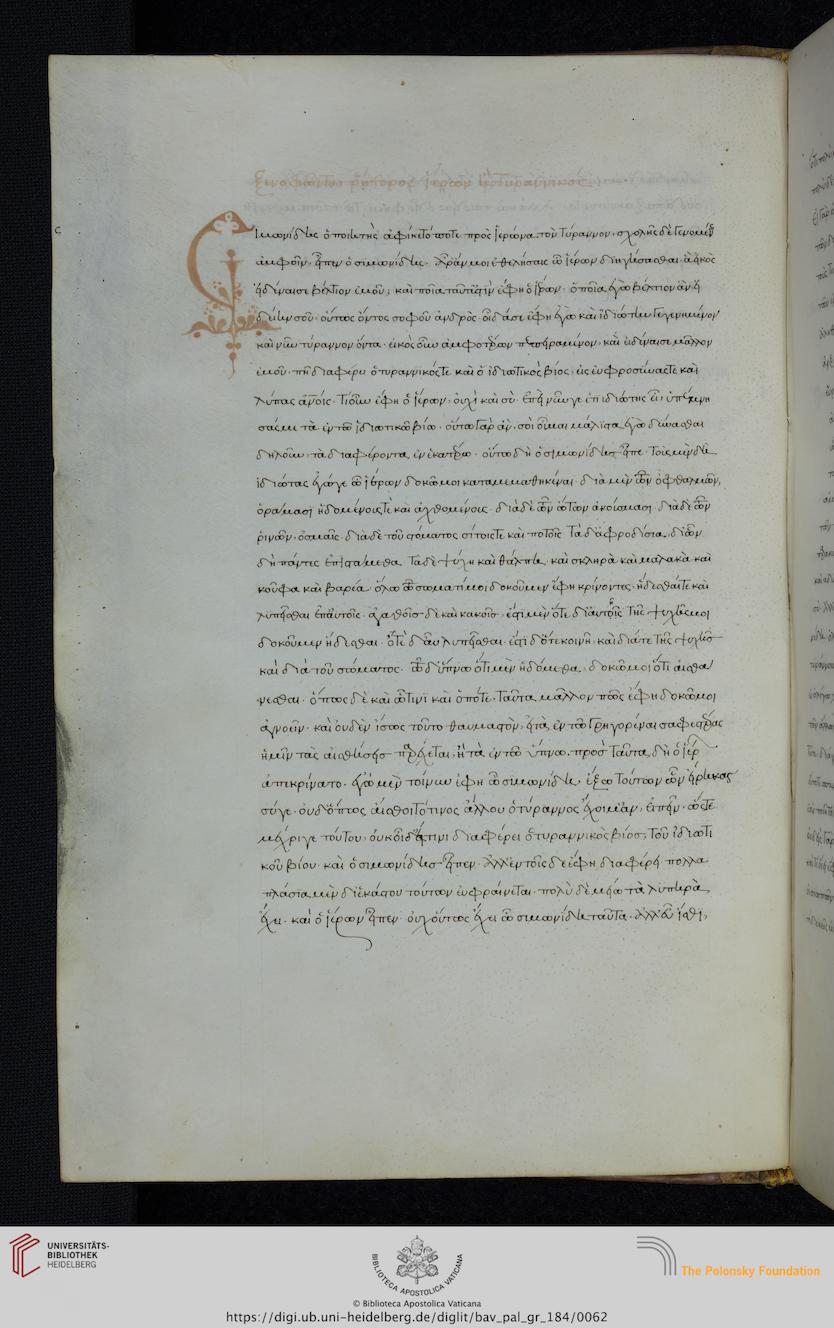 Ξενοφῶντος ῥήτορος ἱέρων ἢ τυραννικός
Σιμωνίδης ὁ ποιητὴς ἀφίκετό ποτε πρὸς ἱέρωνα τὸν τύραννον· σχολῆς δὲ γενομένης
ἀμφοῖν, εἶπεν ὁ σιμωνίδης· ἆρ' ἄν μοι ἐθελήσαις ὦ ἱέρων διηγήσασθαι ἃ εἰκὸς
εἰδέναι σε βέλτιον ἐμοῦ; καὶ ποῖα ταῦτ' ἐστὶν ἔφη ὁ ἱέρων· ὁποῖα ἐγὼ βέλτιον ἂν
εἰδείην σοῦ οὕτως ὄντος σοφοῦ ἀνδρός· οἶδά σε ἔφη ἐγὼ καὶ ἰδιώτην γεγενημένον
καὶ νῦν τύραννον ὄντα· εἰκὸς οὖν ἀμφοτέρων πεπειραμένον, καὶ εἰδέναι σε μᾶλλον
ἐμοῦ· πῆ διαφέρει ὁ τυραννικός τε καὶ ὁ ἰδιωτικὸς βίος, εἰς εὐφροσύνας τε καὶ
λύπας ἀνοις· τί οὖν ἔφη ὁ ἱέρων, οὐχὶ καὶ σύ· ἐπεὶ νῦν γε ἔτι ἰδιώτης εἶ, ὑπέμνη
σάς με τὰ ἐν τῶ ἰδιωτικῶ βίω· οὕτω γὰρ ἄν, σοι οἶμαι μάλιστα ἐγὼ δύνασθαι
δηλοῦν τὰ διαφέροντα ἐν ἑκατέρω· οὕτω δὴ ὁ σιμωνίδης εἶπε· τοὺς μὲν δὴ
ἰδιώτας ἔγωγε ὦ ἱέρων δοκῶ μοι καταμεμαθηκέναι· διὰ μὲν τῶν ὀφθαλμῶν,
ὁράμασι ἡδομένους τε καὶ ἀχθομένους· διὰ δὲ τῶν ὤτων ἀκούσμασι· διὰ δὲ τῶν
ῥινῶν, ὀσμαῖς· διὰ δὲ τοῦ στόματος σίτοις τε καὶ ποτοῖς· τὰ δ' ἀφροδίσια, δι' ὧν
δὴ πάντες ἐπιστάμεθα· τὰ δὲ ψύχη καὶ θάλπη· καὶ σκληρὰ καὶ μαλακὰ καὶ
κοῦφα καὶ βαρέα ὅλω τῶ σώματί μοι δοκοῦμεν ἔφη κρίνοντες, ἥδεσθαί τε καὶ
λυπεῖσθαι ἐπ' αὐτοῖς· ἀγαθοῖς δὲ καὶ κακοῖς· ἔστι μὲν ὅτε δι' αὐτῆς τῆς ψυχῆς μοι
δοκοῦμεν ἥδεσθαι· ὅτε δ' αὖ λυπεῖσθαι· ἔστι δ' ὅτε κοινῆ, καὶ διά τε τῆς ψυχῆς
καὶ διὰ τοῦ σώματος· τῶ δ' ὕπνω ὅτι μὲν ἡδόμεθα, δοκῶ μοι ὅτι αἰσθά
νεσθαι· ὅπως δὲ καὶ ὧτινι καὶ ὁπότε· ταῦτα μᾶλλόν πως ἔφη δοκῶ μοι
ἀγνοεῖν· καὶ οὐδὲν ἴσως τοῦτο θαυμαστόν, εἰ τὰ ἐν τῶ ἐγρηγορέναι σαφεστέρας
ἡμῖν τὰς αἰσθήσεις παρέχεται, ἢ τὰ ἐν τῶ ὕπνω· πρὸς ταῦτα δὴ ὁ ἱέρων
ἀπεκρίνατο· ἐγὼ μὲν τοίνυν ἔφη ὦ σιμωνίδη, ἔξω τούτων ὧν εἴρηκας
σύ γε· οὐδ' ὅπως αἴσθοιτό τινος ἄλλου ὁ τύραννος ἔχοιμ' ἄν, εἰπεῖν· ὥστε
μέχρι γε τούτου, οὐκ οἶδ' εἴ τινι διαφέρει ὁ τυραννικὸς βίος, τοῦ ἰδιωτι
κοῦ βίου· καὶ ὁ σιμωνίδης εἶπεν· ἀλλ' ἐν τοῖς δε ἔφη διαφέρει· πολλα
πλάσια μὲν δι' ἑκάστου τούτων εὐφραίνεται· πολὺ δὲ μείω τὰ λυπηρὰ
ἔχει· καὶ ὁ ἱέρων εἶπεν· οὐχ οὕτως ἔχει ὦ σιμωνίδη ταῦτα· ἀλλ' εὖ ἴσθι,
UNIVERSITÄTS-
BIBLIOTHEK
HEIDELBERG
BIBLIOTECA APOSTOLICA VATICANA
The Polonsky Foundation
© Biblioteca Apostolica Vaticana
https://digi.ub.uni-heidelberg.de/diglit/bav_pal_gr_184/0062